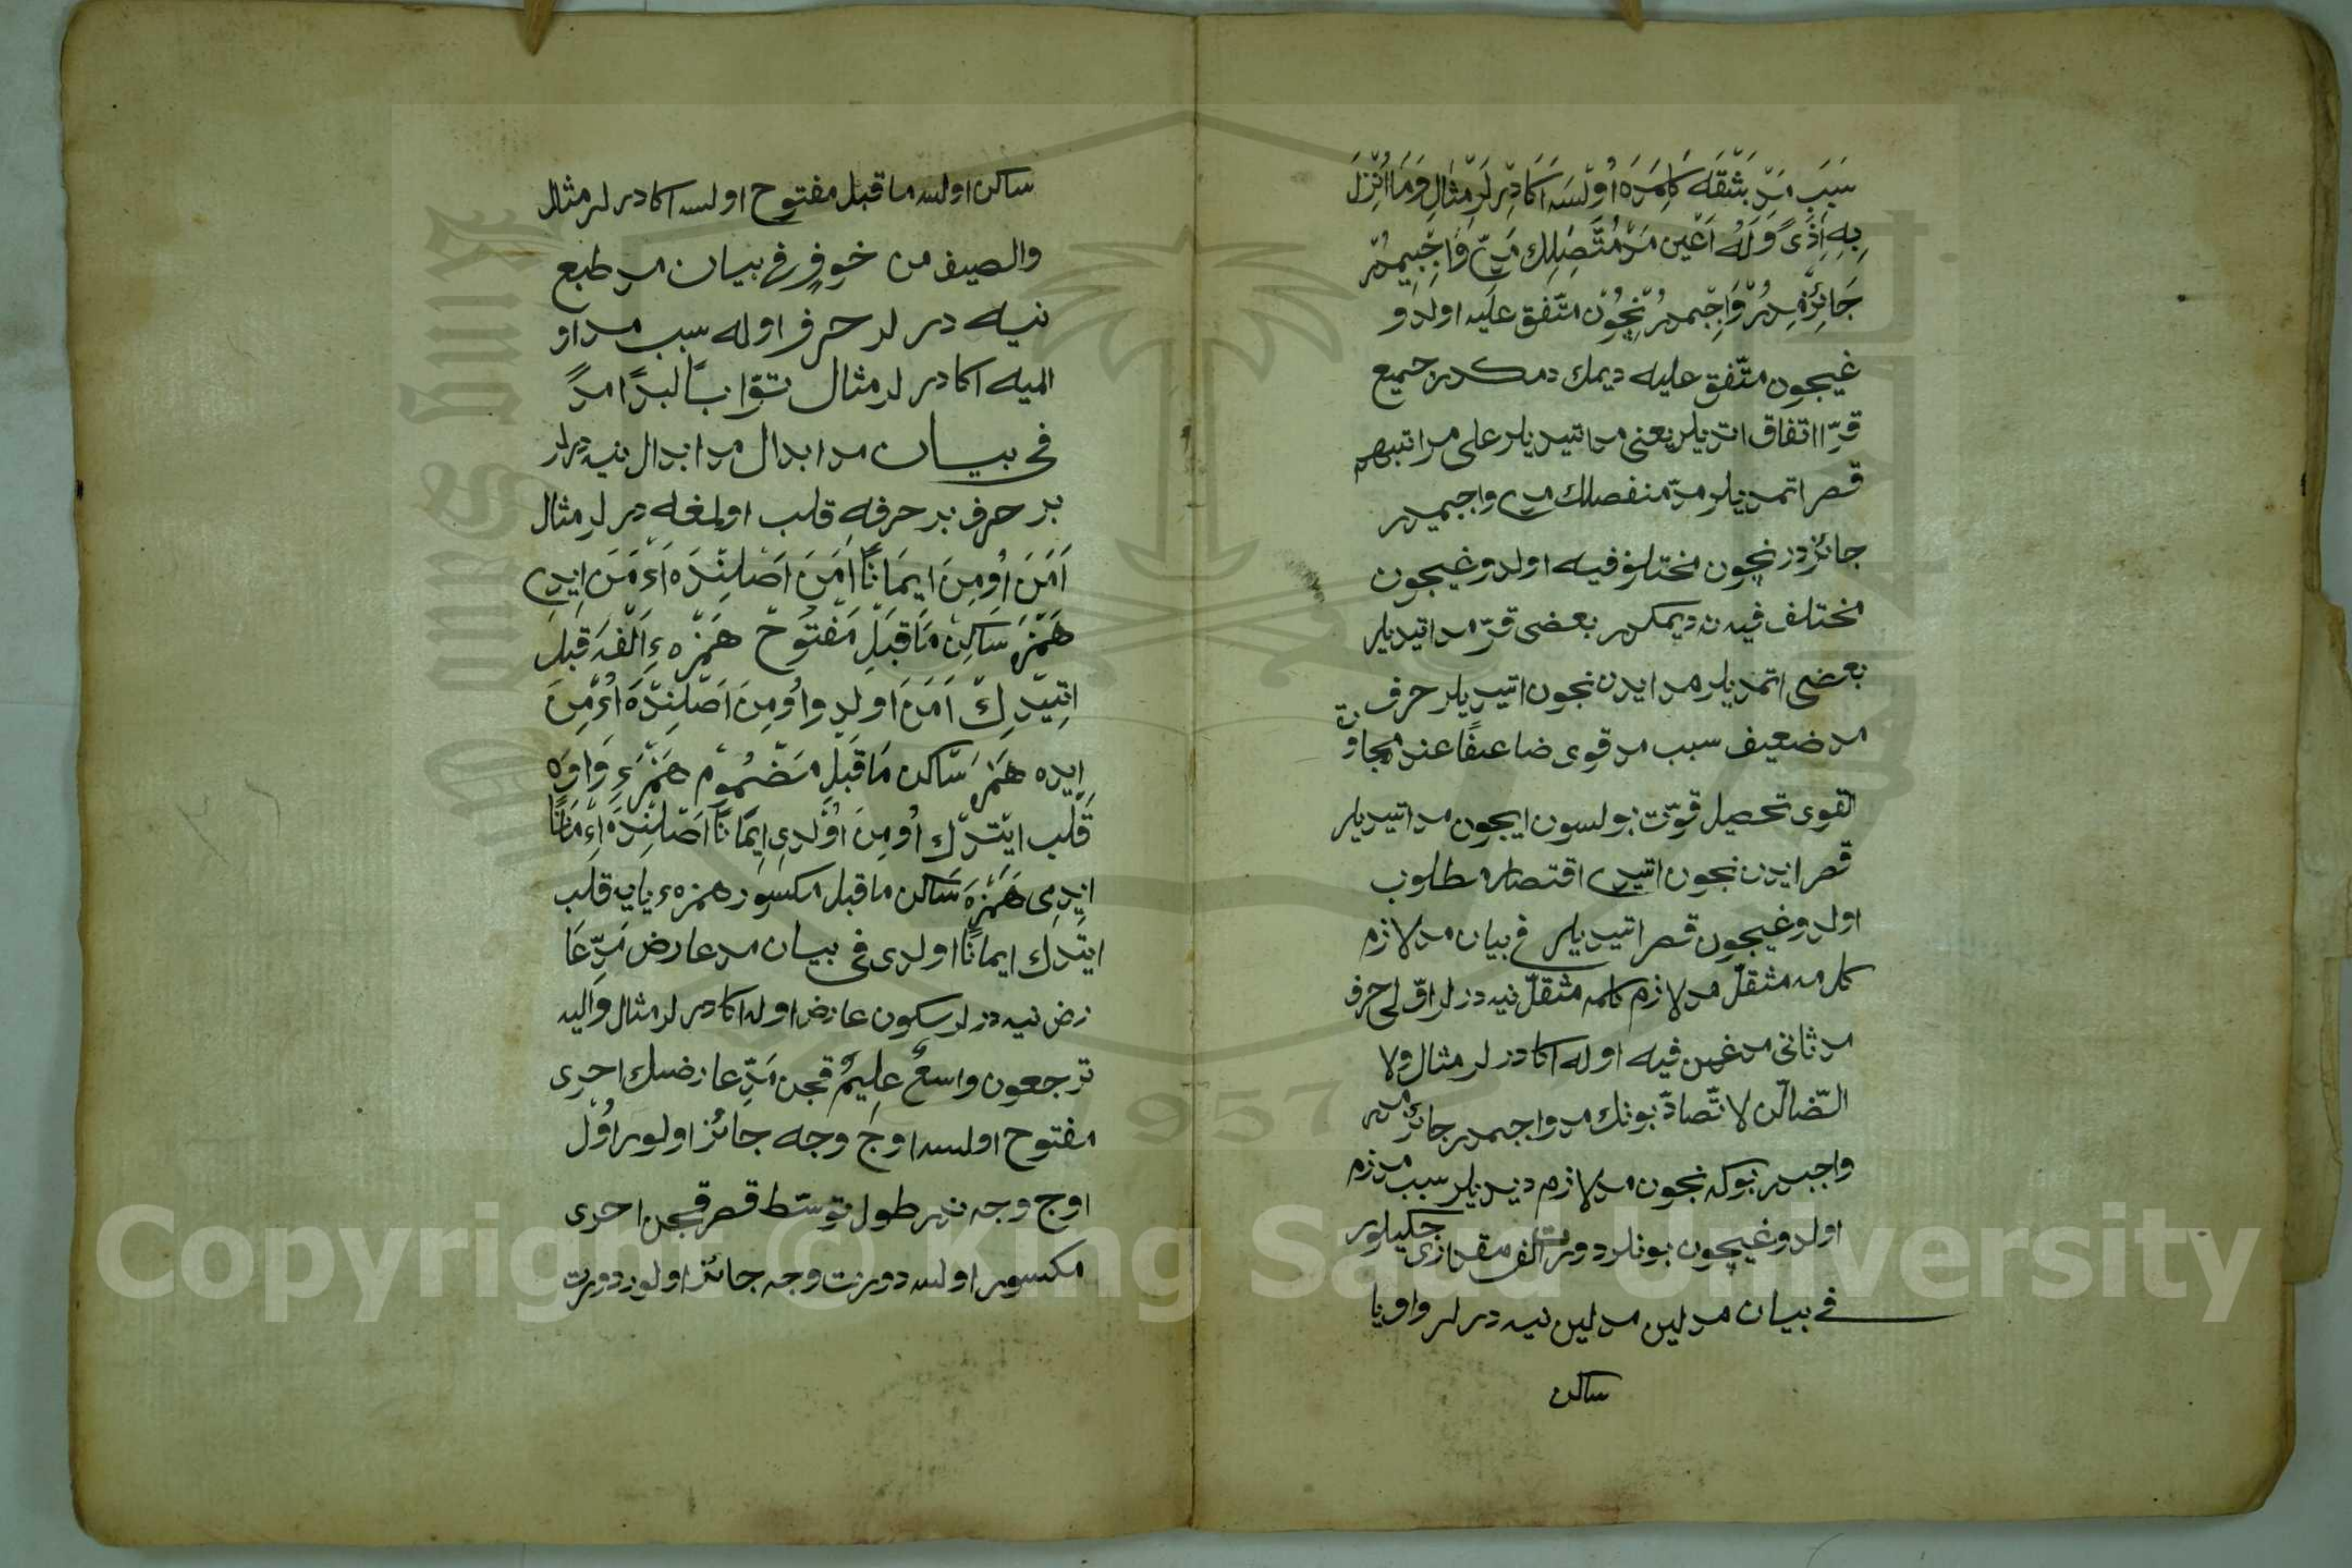 سَبَبِ مَدّ بَشْقَه كَلِمَدَه اُولْسَه اَكَا دِرْلَر مِثَالِ وَمَا اُنْزِلَ
بِهِ اَذًى وَلَهُ اَعْيُن مَدّ مُتَّصِلِك مَدّى وَاجِبْمِيدُر
جَائِزْمِيدُر وَاجِبْدُر نِچُون متّفق عليه اولدو
غيچون متّفق عليه ديمك دمكدر جميع
قرّا اتفاق اتديلر يعنى مد اتيديلر على مراتبهم
قصر اتمديلر مدّ منفصلك مدى واجبميدر
جائزدر نچون مختلف فيه اولدوغيچون
مختلف فيه نه ديمكدر بعضى قرّ مد اتيديلر
بعضى اتمديلر مد ايدن نچون اتيديلر حرف
مد ضعيف سبب مد قوى ضاعفًا عند مجاورة
القوى تحصيل قوّت بولسون ايچون مد اتيديلر
قصر ايدن نچون اتيدى اقتصاره مطلوب
اولدوغيچون قصر اتيديلر فى بيان مد لازم
كلمه مثقلّ مد لازم كلمه مثقلّ نيه درلر اوّلى حرف
مد ثانى مدغم فيه اوله اكا درلر مثال ولا
الضّالّن لا تضادّ بونك مد واجبمدر جائزمدر
واجبدر بوكه نچون مد لازم ديديلر سبب مد لازم
اولدوغيچون بونلر دورت الف مقدارى چكيلور
فى بيان مد لين مد لين نيه درلر واو يا
ساكن
ساكن اولسه ما قبل مفتوح اولسه اكا درلر مثال
والصيف من خوف فى بيان مد طبع
نيه درلر حرف اوله سبب مد او
لميه اكا درلر مثال توّابًا لبدًا امدًا
فى بيان مد ابدال مد ابدال نيه درلر
بر حرف بر حرفه قلب اولمغله درلر مثال
اَمَنَ اُومِنَ اِيمَانًا اَمَنَ اَصْلِنْدَه اَءْمَنَ اِيدِى
هَمْزَه سَاكِنْ مَا قَبْلِ مَفْتُوحْ هَمْزَه ءِ اَلْفَه قَلْبِ
اتِيدِكْ اَمَنَ اولدِ واُومِنَ اَصْلِنْدَه اُءْمِنَ
اِيدِه هَمْزَه سَاكن مَا قَبْلِ مَضْمُومْ هَمْزَءِ وَاوَه
قَلْب ايْتدِك اُومِنَ اوْلدى اِيمَانًا اَصْلِنْدَه اِءْمَانًا
ايدى هَمْزَه سَاكن ما قبل مكسور همزهء يايه قلب
ايتدك ايمانًا اولدى فى بيان مد عارض مَدّ عَا
رض نيه درلر سكون عارض اوله اكا درلر مثال واليه
ترجعون واسعٌ عليمٌ قچن مَدّ عارضك اخرى
مفتوح اولسه اوچ وجه جائز اولور اوّل
اوچ وجه ندر طول توسّط قصر قچن اخرى
مكسور اولسه دورت وجه جائز اولور دورت
Copyright © King Saud University
1957